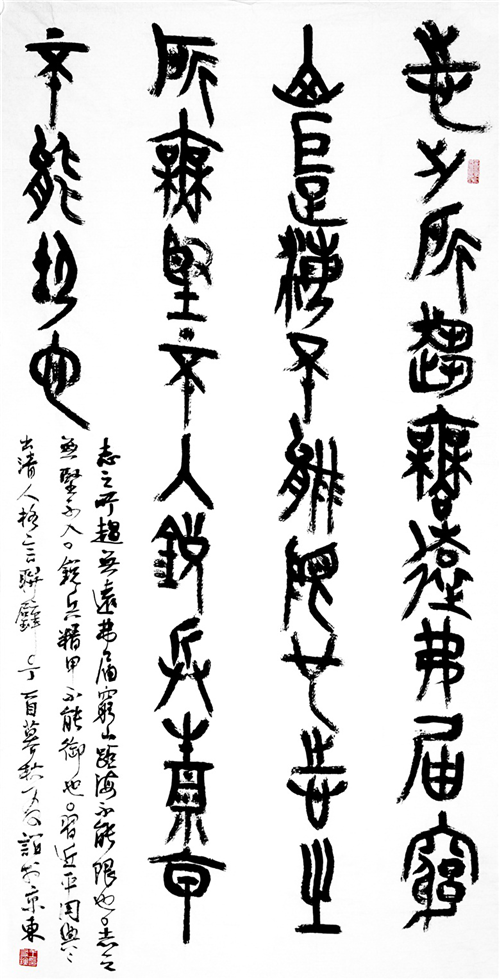 志之所趨無遠弗屆窮
山距海不能限也志之
所無堅不入銳兵精甲
不能御也
志之所趨無遠弗屆窮山距海不能限也志之
無堅不入銳兵精甲不能御也習近平用典
出清人格言聯璧丁酉暮秋誼於京東